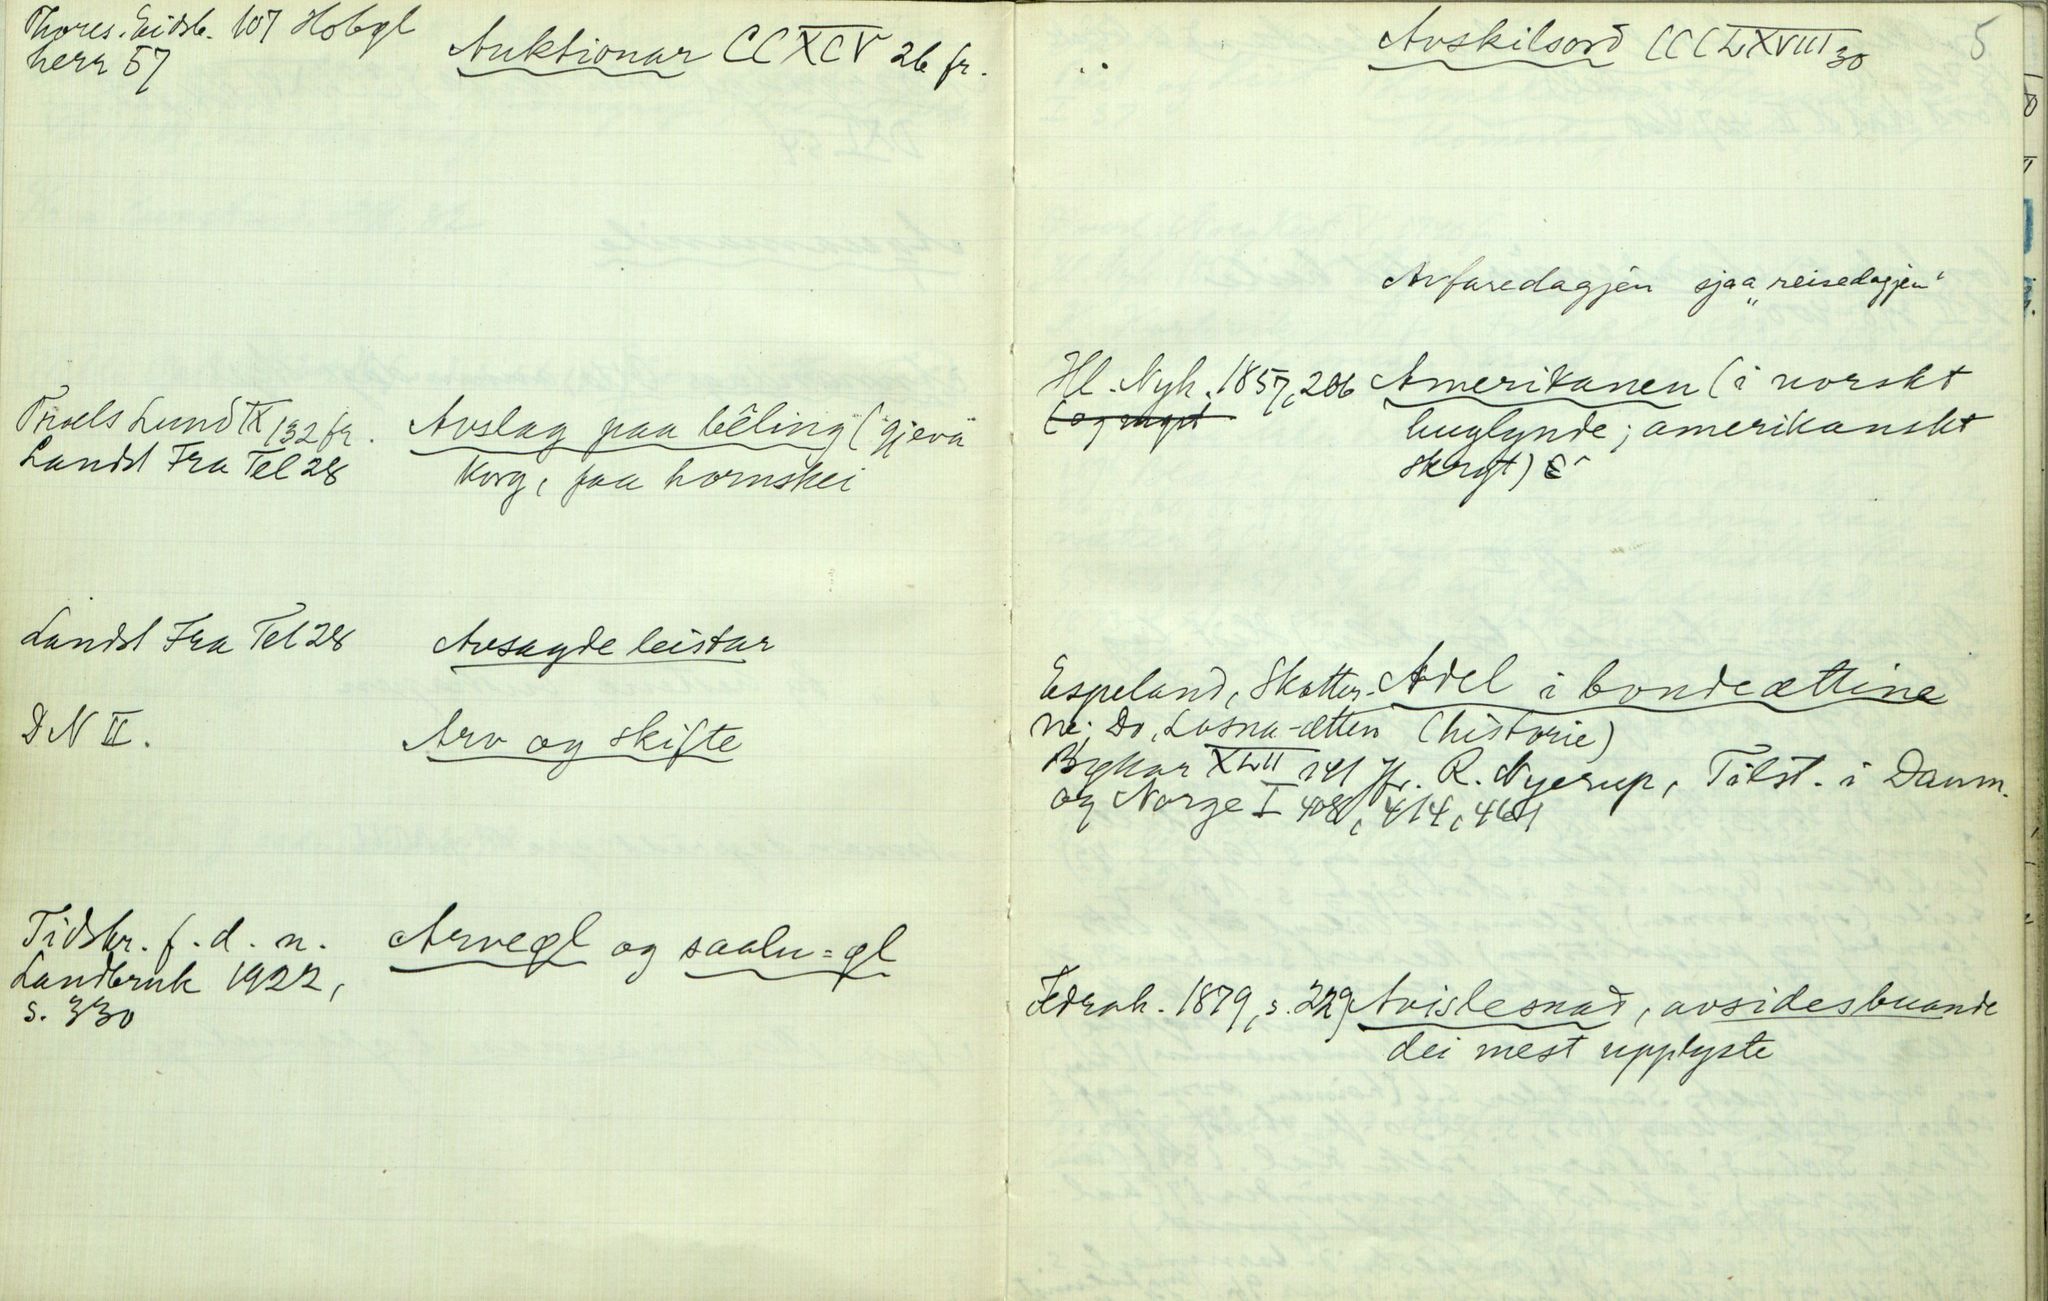 Thores. Eidsb. 107 Hobgl
herr 57
Auktionar CCXCV 26 fr.
Troels Lund IX 132 fr.
Landst Fra Tel 28
Avslag paa bêling ("gjeva
korg, faa hornskei
Landst Fra Tel 28
Avsagde leistar
DN II.
Arv og skifte
Tidskr. f. d. n.
Landbruk 1922,
s. 330
Arvegl og saalu=gl
5
Avskilsord CCCLXVIII 30
Avfaredagjen sjaa „reisedagjen"
Hl. Nyk. 1857, 206 Amerikanen (i norskt
huglynde; amerikanskt
skryt)
Espeland, Skatter- Adel i bondeættine
ne; Do, Losna-ætten (historie)
Bygkar XLII 141 Jfr. R. Nyerup, Tilst. i Danm.
og Norge I 408, 414, 461
Fedrah. 1879, s. 229 Avislesnad, avsidesbuande
dei mest upplyste